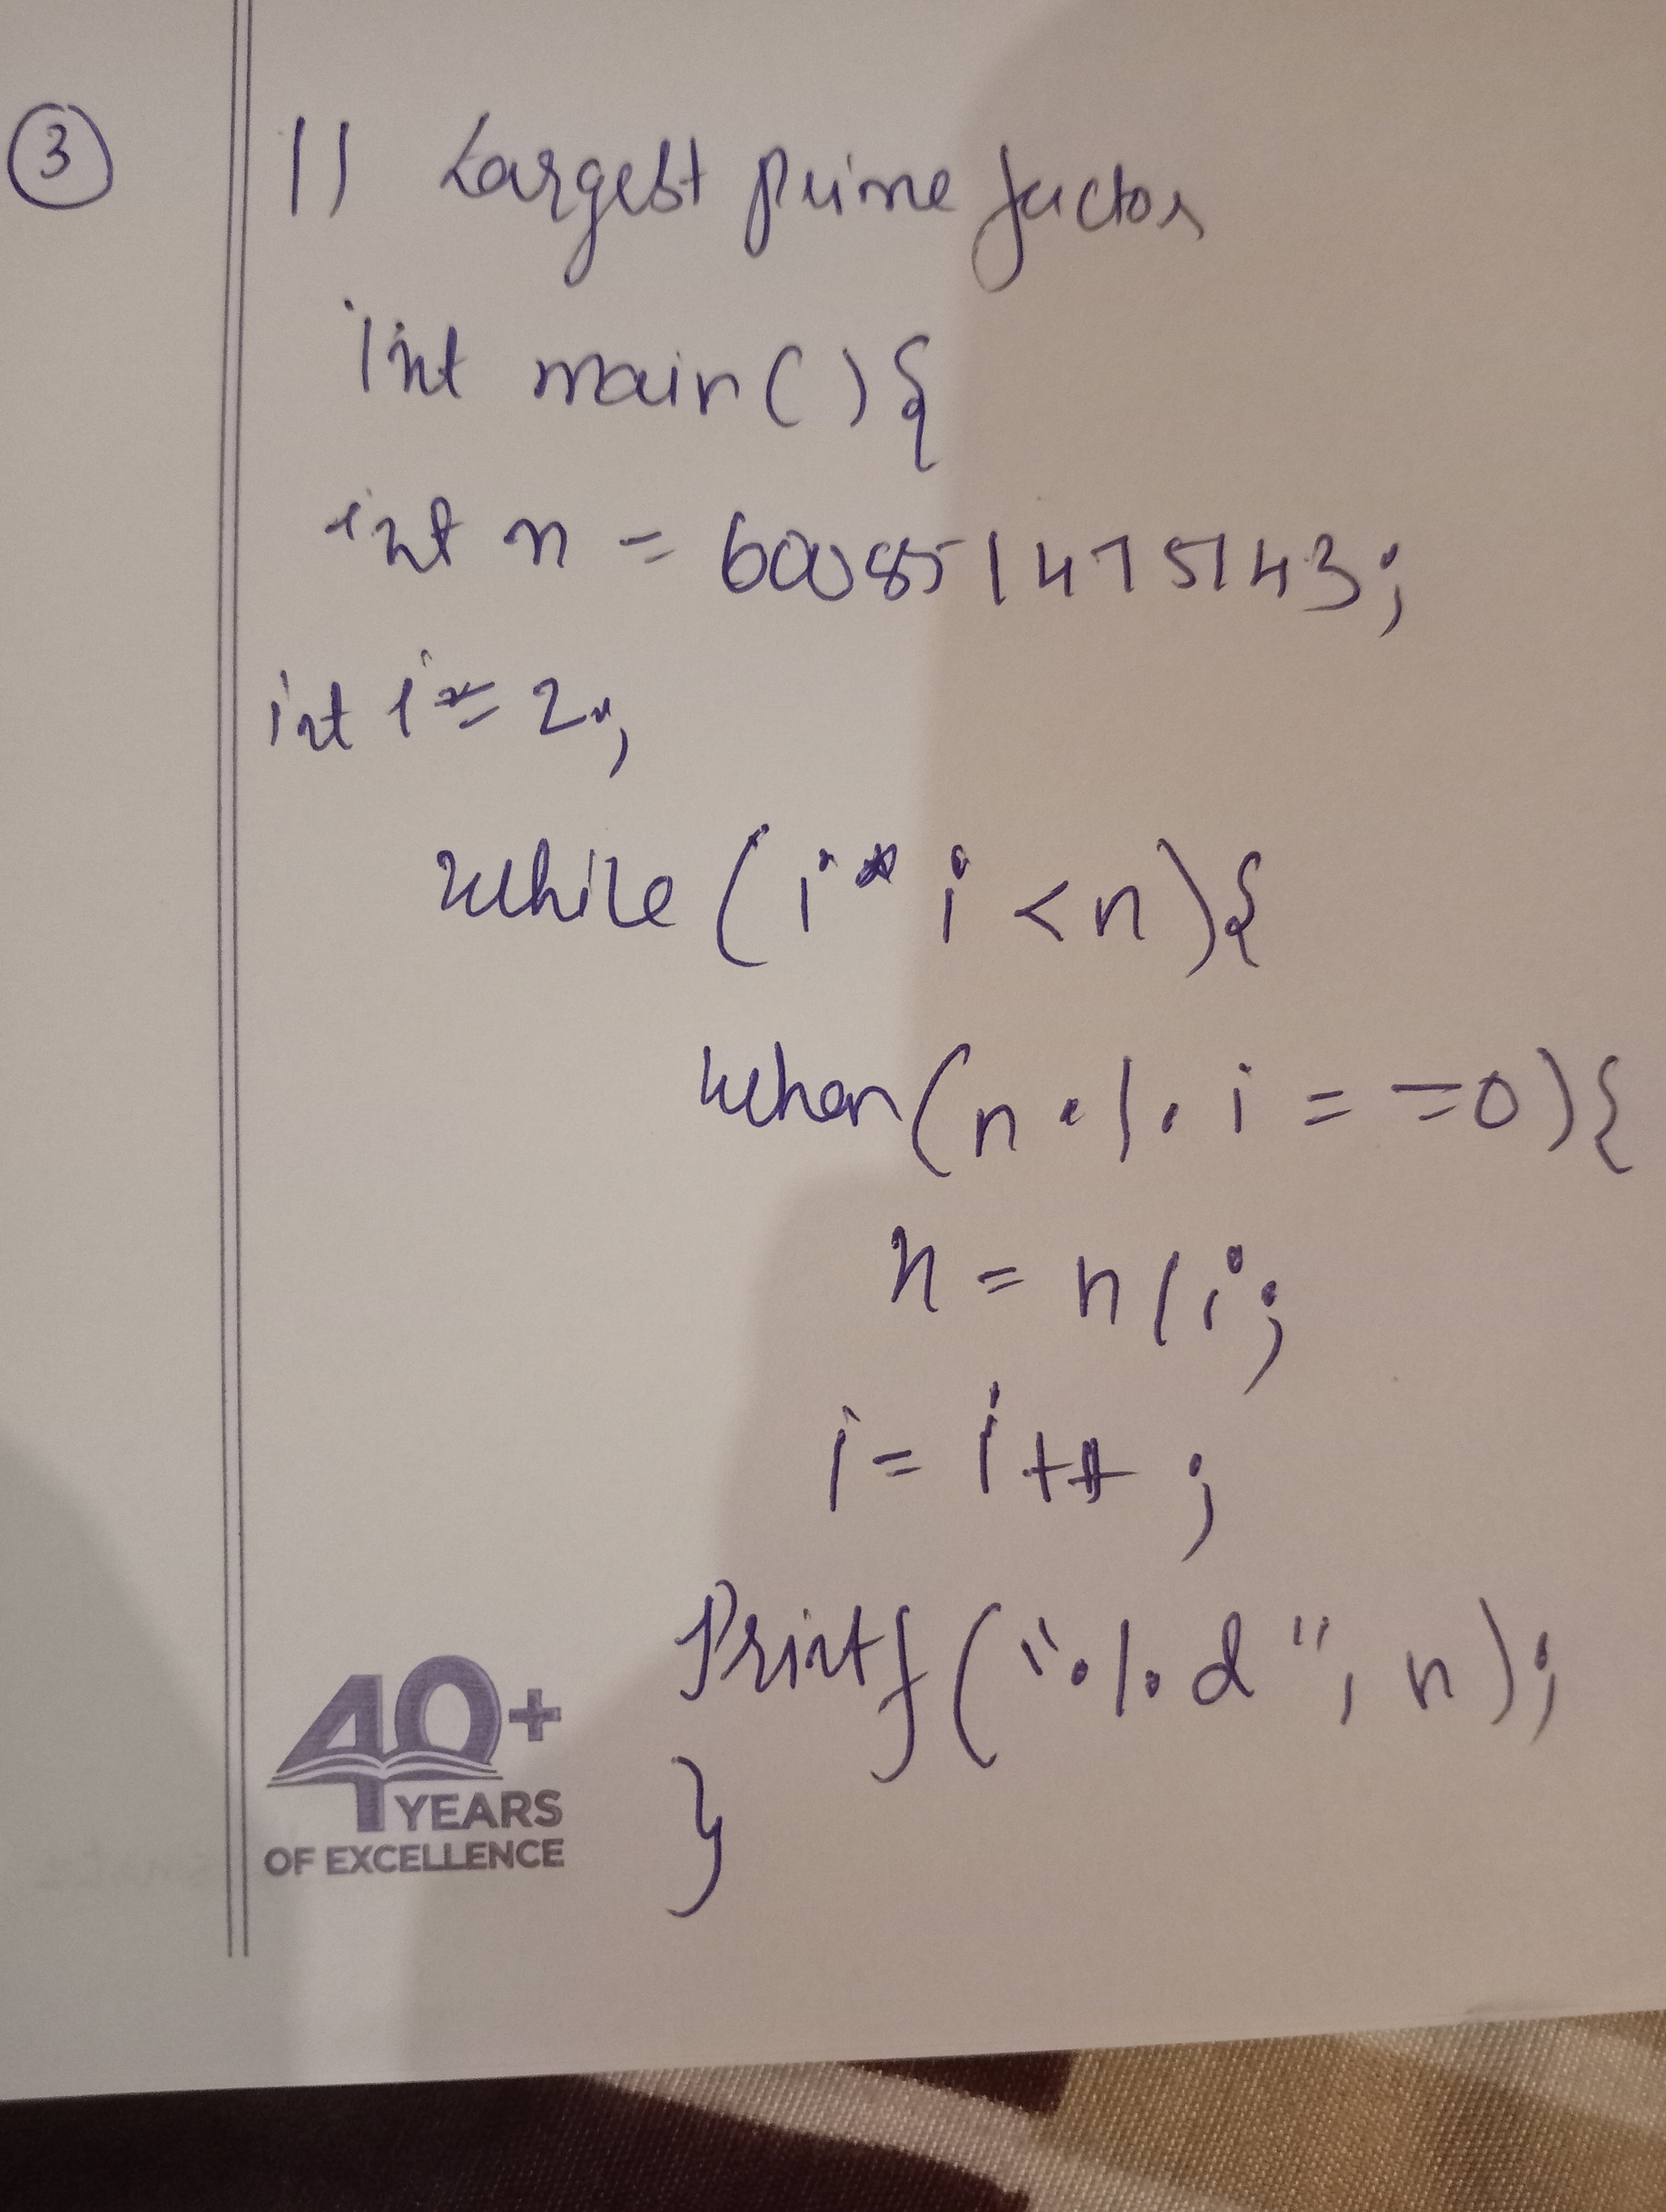 ③ // Largest prime factor
int main() {
int n = 600851475143;
int i = 2;
while (i * i < n) {
when (n % i == 0) {
n = n / i;
i = i ++ ;
Printf ("%d", n);
}
40+
YEARS
OF EXCELLENCE